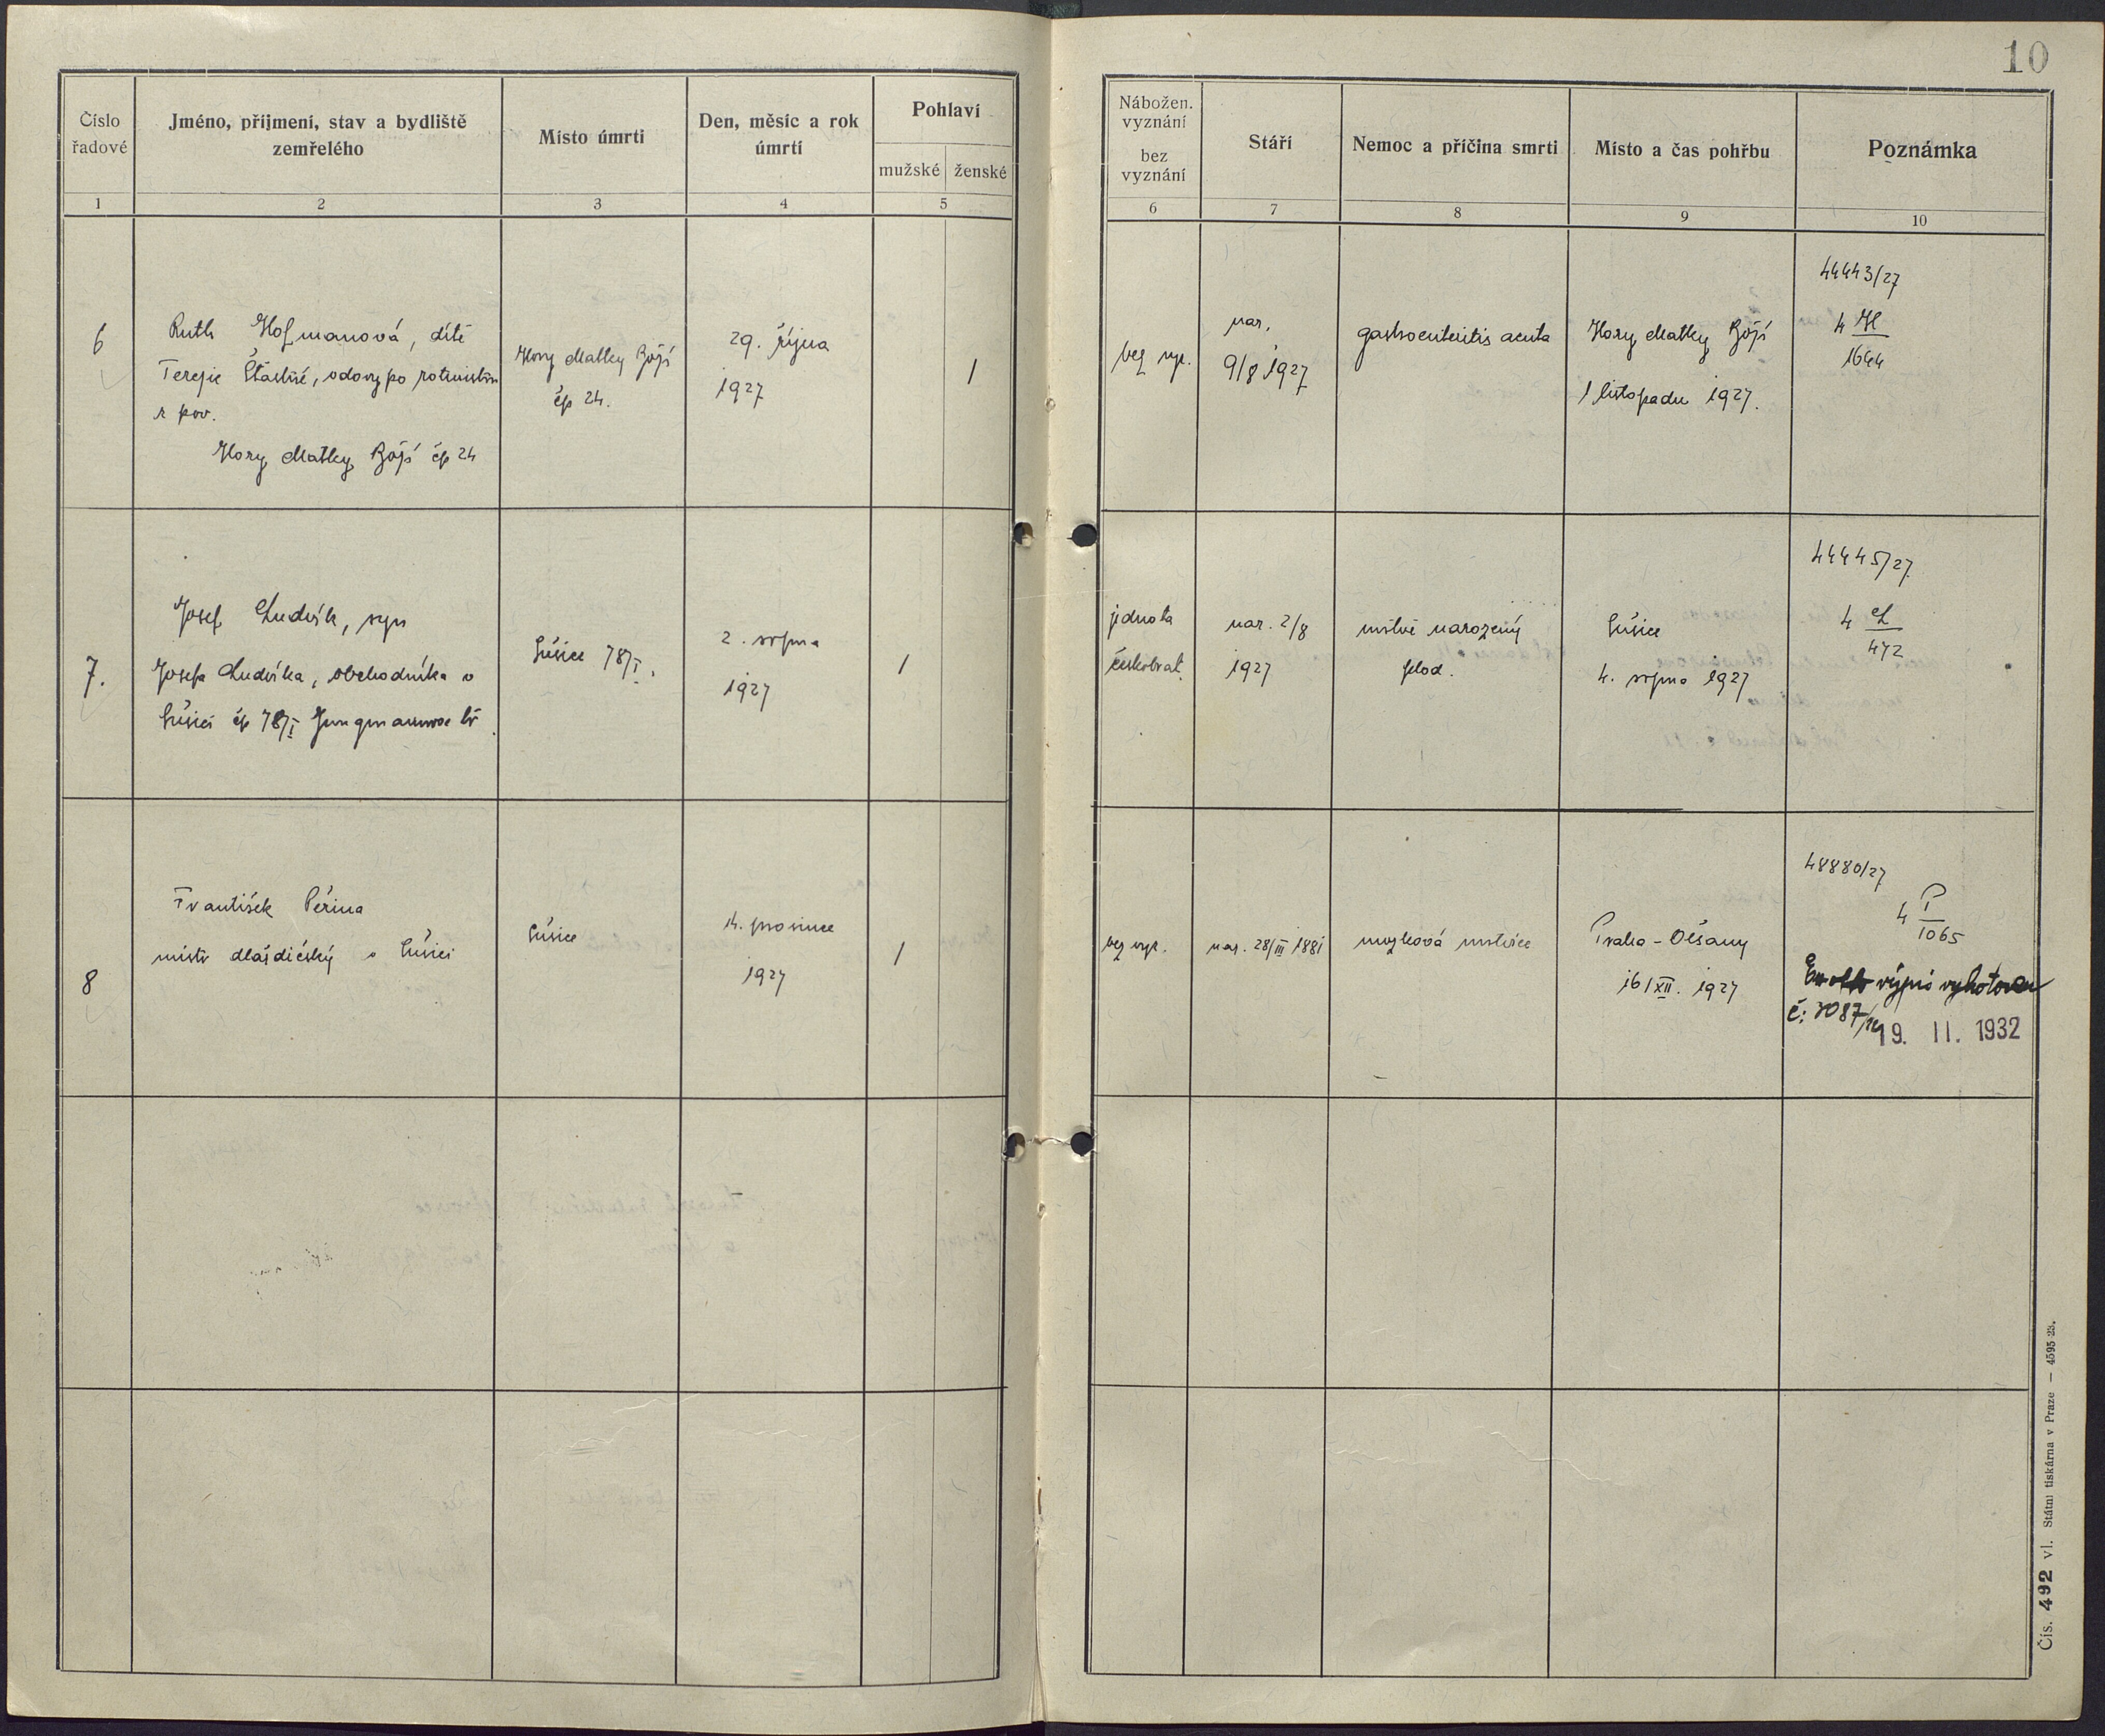 10
Číslo řadové
Jméno, příjmení, stav a bydliště zemřelého
Místo úmrtí
Den, měsíc a rok úmrtí
Pohlaví
mužské
ženské
Nábožen. vyznání
bez vyznání
Stáří
Nemoc a příčina smrti
Místo a čas pohřbu
Poznámka
1 2 3 4 5 6 7 8 9 10
6
Ruth Hofmanová, dítě
Terezie Šťastné, vdovy po
Hory Matky Boží čp 24
Hory Matky Boží
čp 24.
29. října
1927
1
bez vyz.
nar.
9/8 1927
gastroenteritis acuta
Hory Matky Boží
1 listopadu 1927.
44443/27
4 H
1644
7.
Josef Ludvík, syn
Josefa Ludvíka, obchodníka v
Sušici čp 78/I Jungmannova tř.
Sušice 78/I.
2. srpna
1927
1
jednota
českobrat.
nar. 2/8
1927
mrtvě narozený
plod.
Sušice
4. srpna 1927
44445/27
4 L
472
8
František Peřina
mistr dláždičský v Sušici
Sušice
14. prosince
1927
1
bez vyz.
nar. 28/III 1881
mozková mrtvice
Praha - Olšany
16/XII. 1927
48880/27
4 P
1065
výpis vyhotoven
č: 3087/
19. II. 1932
Čís. 492 vl. Státní tiskárna v Praze — 4595 23.